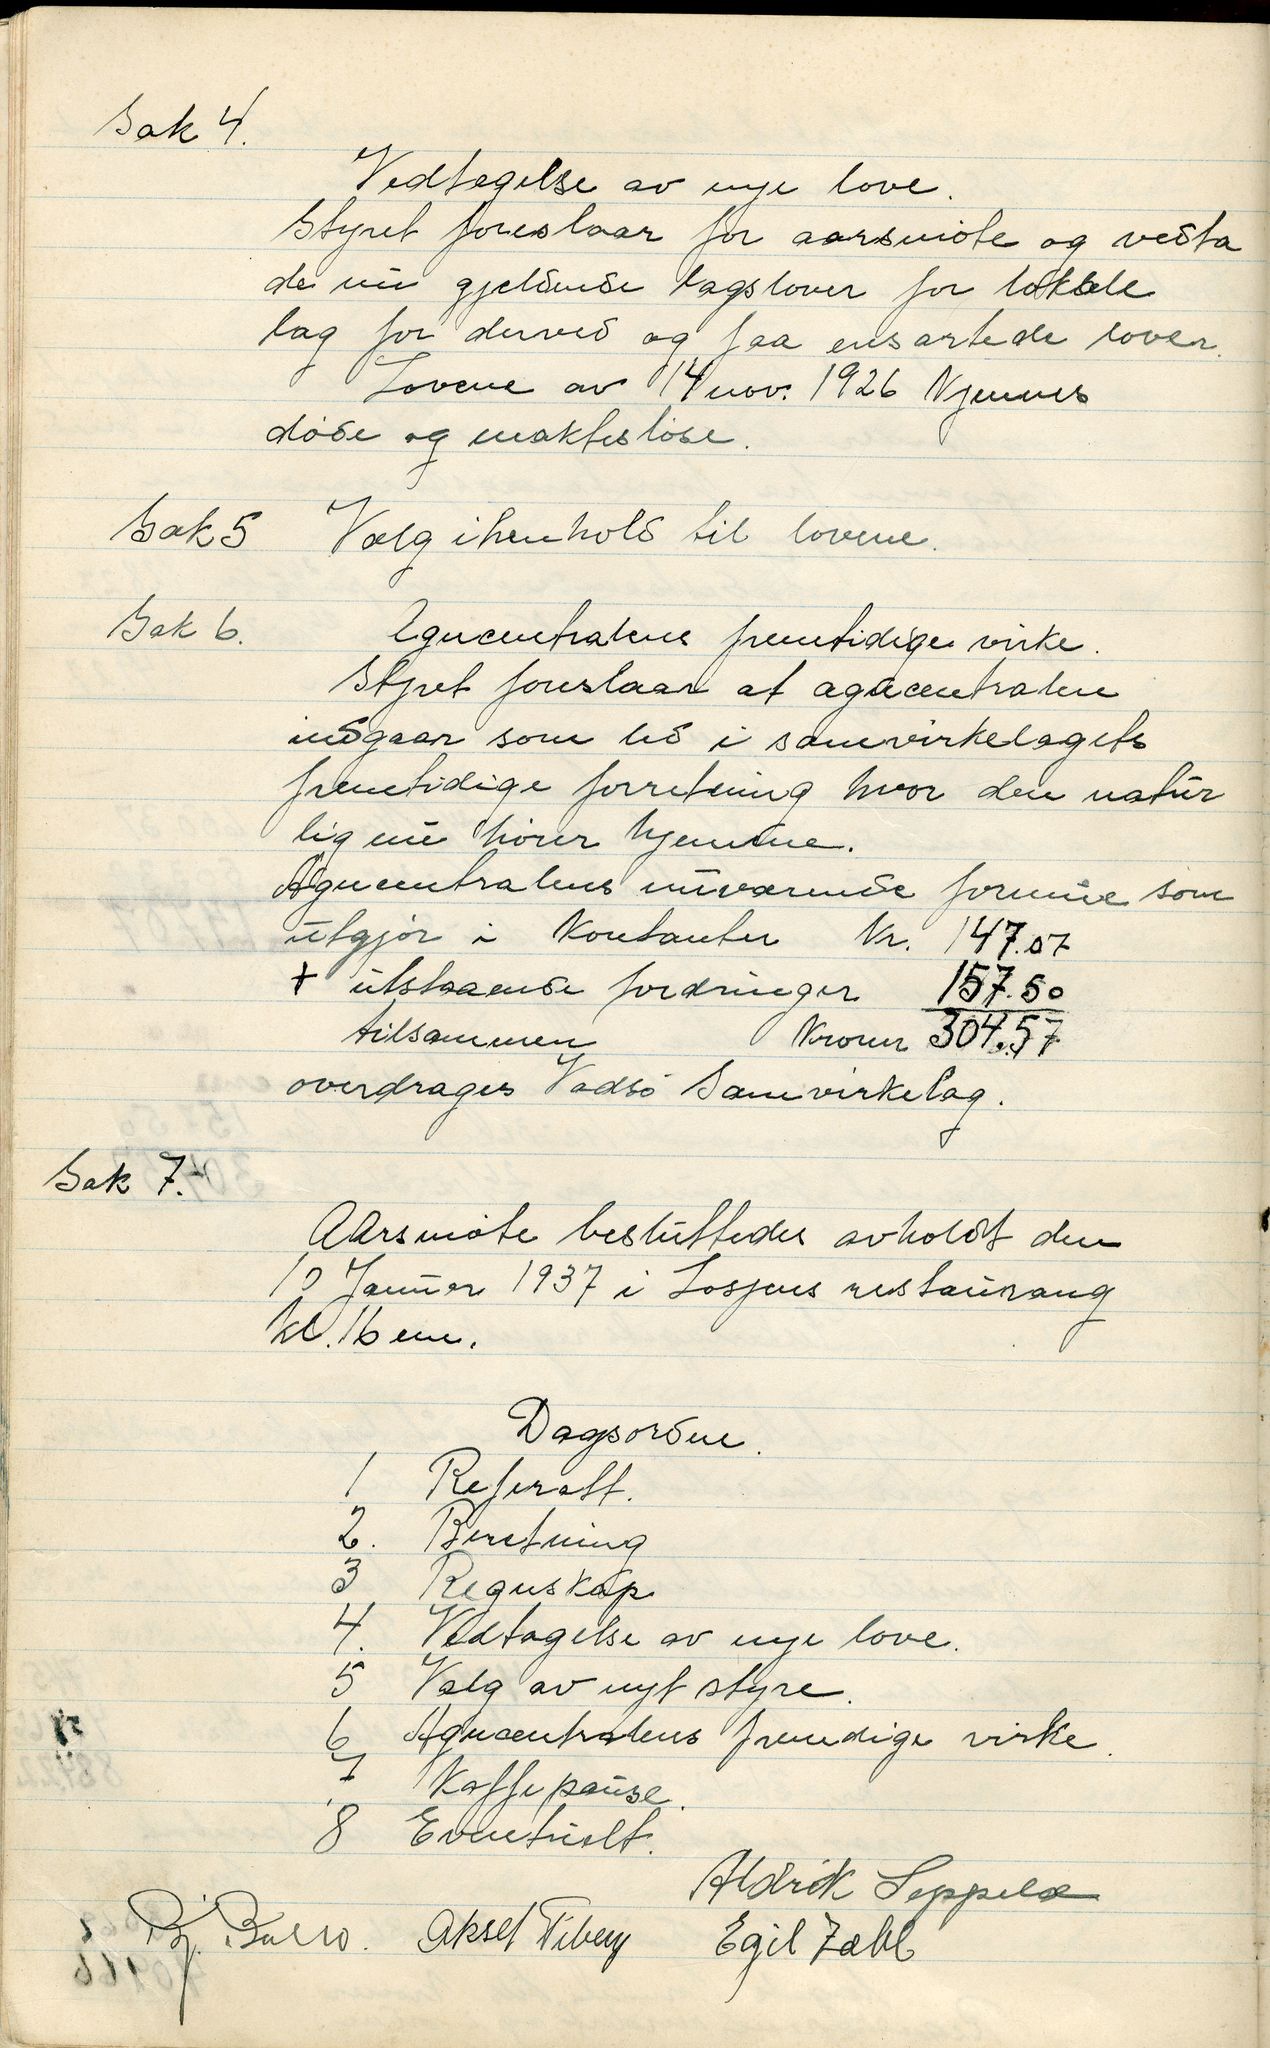 Sak 4.
Vedtagelse av nye love.
Styret foreslaar for aarsmøte og vedta
de nu gjeldende lagslover for lokale
lag for derved og faa ensartede lover.
Lovene av 14 nov. 1926 Kjennes
døde og maktesløse.
Sak 5 Valg ihenhold til lovene.
Sak 6. Egncentralens fremtidige virke.
Styret foreslaar at agncentralen
indgaar som led i samvirkelagets
fremtidige forretning hvor den natur
lig nu hører hjemme.
Agncentralens nuværende formue som
utgjør i Kontanter Kr. 147.07
+ utstaaende fordringer 157.50
tilsammen Kroner 304.57
overdrages Vadsø Samvirkelag.
Sak 7.
Aarsmøte besluttedes avholdt den
10 Januar 1937 i Losjens restaurang
kl. 16 em.
Dagsorden.
1 Referatt.
2. Beretning
3 Regnskap
4. Vedtagelse av nye love.
5 Valg av nyt styre.
6 Agncentralens fremdige virke.
7 Kaffepause.
8 Eventuelt.
Aldrik Seppelæ
Akset Tiberg Egil Zahl